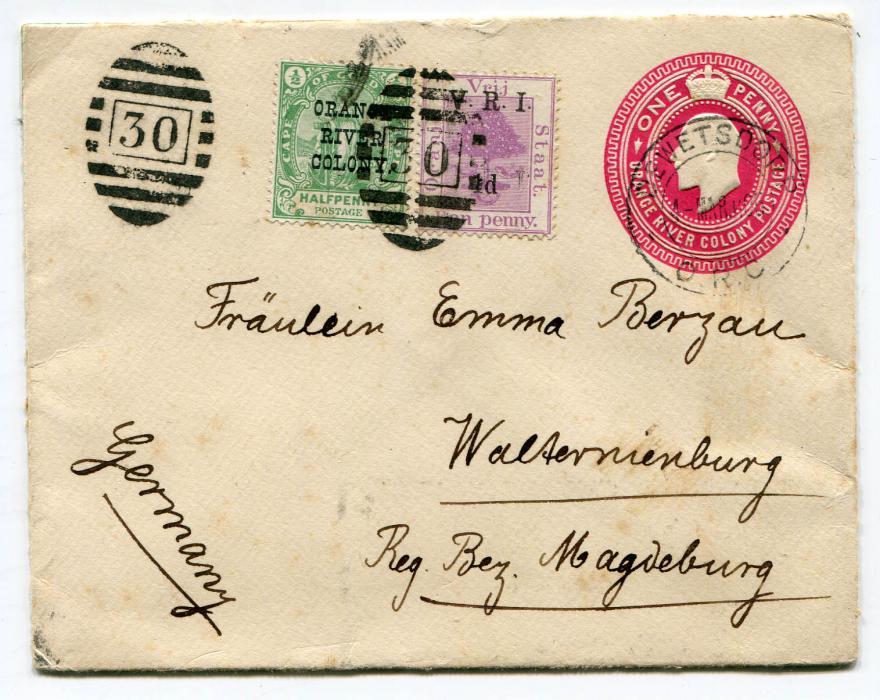 30
½
OF G
CAPE
ORAN
RIVER
COLONY.
HALFPEN
POSTAGE
30
Vrij
V. R. I.
Staat.
d
en penny.
ONE PENNY
ORANGE RIVER COLONY POSTAGE
DEWETSDORP
MAR
O.R.C
Fräulein Emma Berzau
Walternienburg
Reg. Bez. Magdeburg
Germany